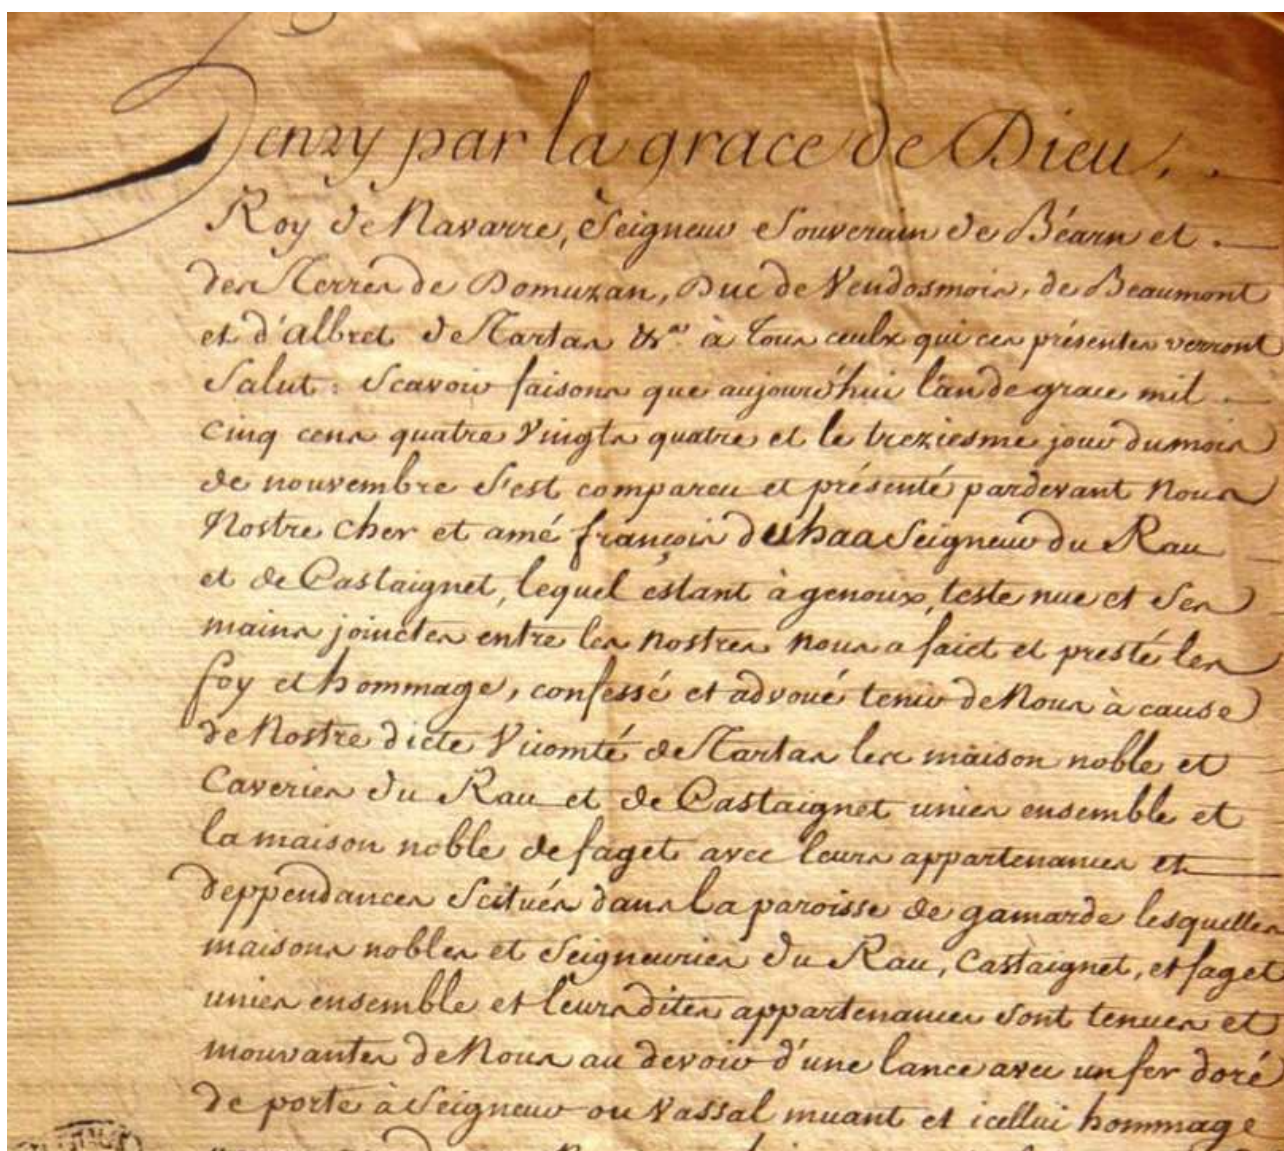 Henry par la grace de Dieu,
Roy de Navarre, Seigneur Souverain de Béarn et
des Terres de Domuzan, Duc de Vendosmois, de Beaumont
et d'albret de Tartas &ca à Tous ceulx qui ces présentes verront
Salut : Scavoir faisons que aujourd'hui l'an de grace mil
cinq cens quatre Vingts quatre et le treziesme jour du mois
de nouvembre s'est compareu et présenté pardevant Nous
Nostre cher et amé françois du haa Seigneur du Rau
et de Castaignet, lequel estant à genoux, teste nue et Ses
mains joinctes entre les nostres nous a faict et presté les
foy et hommage, confessé et advoué tenir de Nous à cause
de Nostre dicte Vicomté de Tartas les maison noble et
Caveries du Rau et de Castaignet unies ensemble et
la maison noble de faget avec leurs appartenances et
deppendances Scituées dans La paroisse de gamarde lesquelles
maisons nobles et Seigneuries du Rau, Castaignet, et faget
unies ensemble et leursdites appartenances sont tenues et
mouvantes de Nous au devoir d'une lance avec un fer doré
de porte à Seigneur ou Vassal muant et icellui hommage